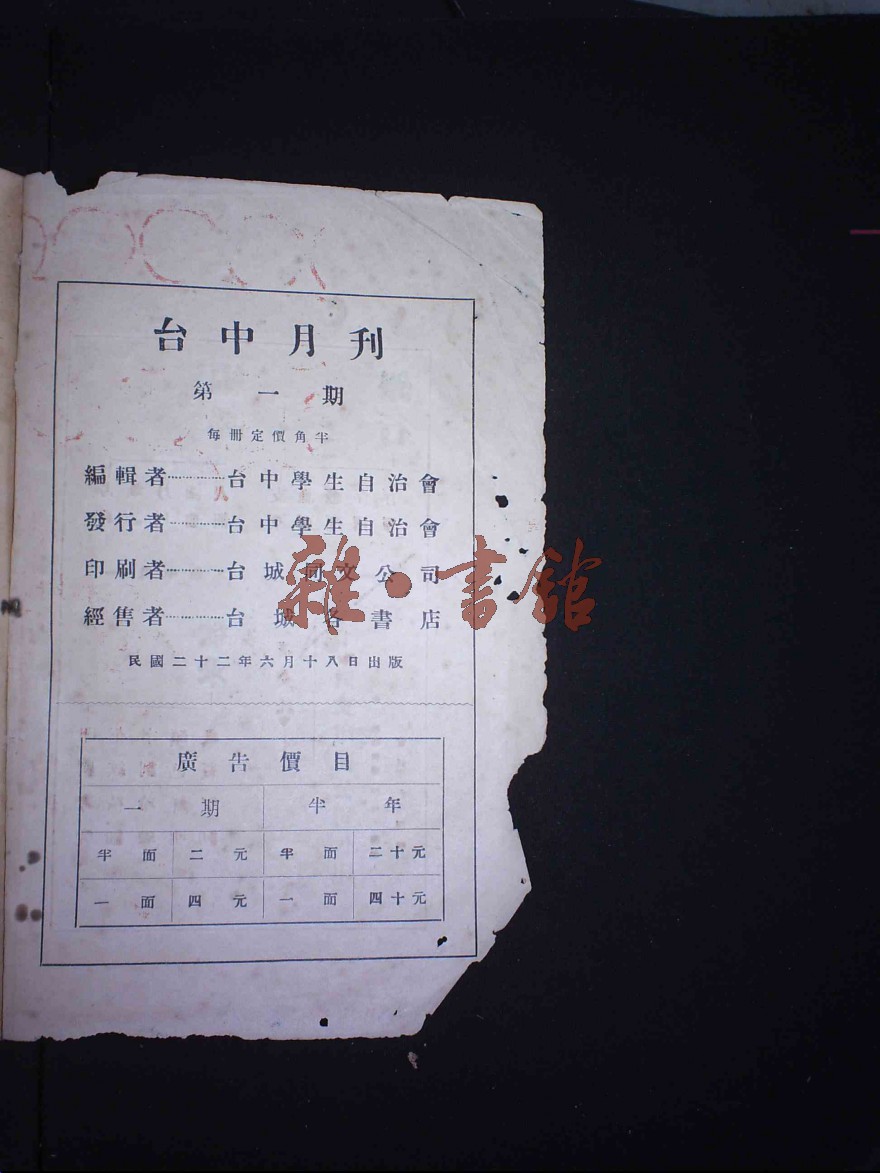 台中月刊
第一期
每冊定價角半
編輯者…………台中學生自治會
發行者…………台中學生自治會
印刷者…………台城同文公司
經售者…………台城各書店
民國二十二年六月十八日出版
廣告價目
一期 半年
半面 二元 半面 二十元
一面 四元 一面 四十元
雜·書館